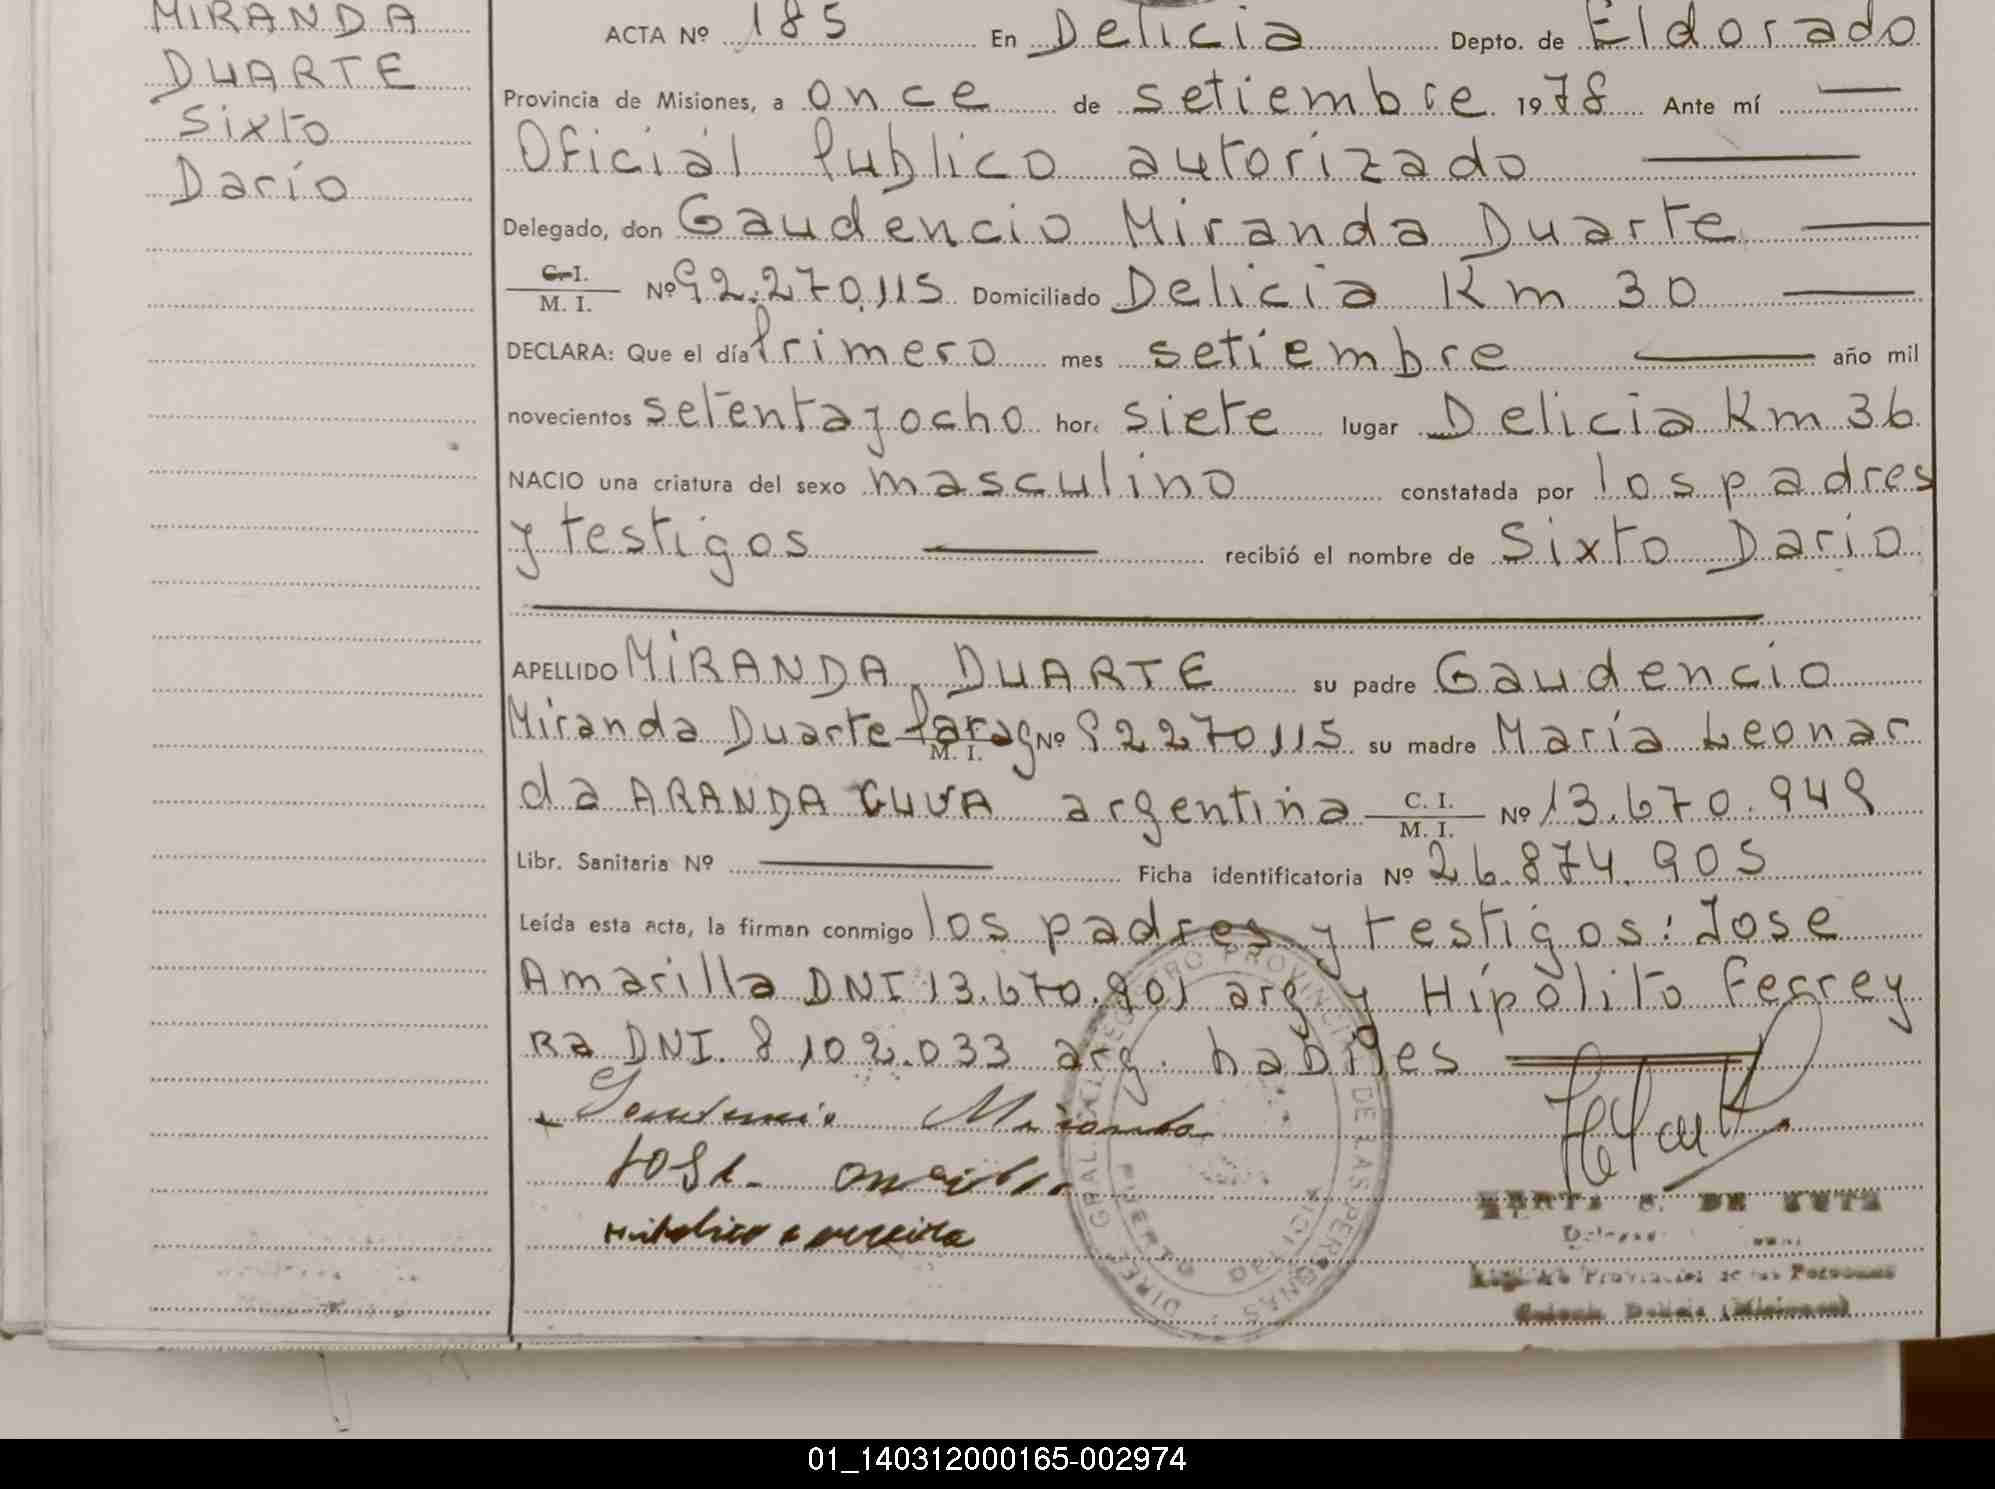 MIRANDA
DUARTE
Sixto
Darío
ACTA Nº 185 En Delicia Depto. de Eldorado
Provincia de Misiones, a once de setiembre 1978 Ante mí —
Oficial Publico autorizado —
Delegado, don Gaudencio Miranda Duarte —
C.I. / M. I. Nº 92.270.115 Domiciliado Delicia Km 30 —
DECLARA: Que el día Primero mes setiembre — año mil
novecientos setentayocho hor. siete lugar Delicia Km 36
NACIO una criatura del sexo masculino constatada por los padres
y testigos — recibió el nombre de Sixto Darío
APELLIDO MIRANDA DUARTE su padre Gaudencio
Miranda Duarte Parag M. I. Nº 92270115 su madre María Leonar
da ARANDA argentina C. I. / M. I. Nº 13.670.949
Libr. Sanitaria Nº — Ficha identificatoria Nº 26.874.905
Leída esta acta, la firman conmigo los padres y testigos: Jose
Amarilla DNI 13.670.901 arg y Hipólito Ferrey
Ra DNI. 8.102.033 arg. habiles
Gaudencio Miranda
José
DE
Registro Provincial de las Personas
Colonia Delicia (Misiones)
DIREC. GRAL. DEL REGISTRO PROVINCIAL DE LAS PERSONAS
PUERTO DELICIA
01_140312000165-002974